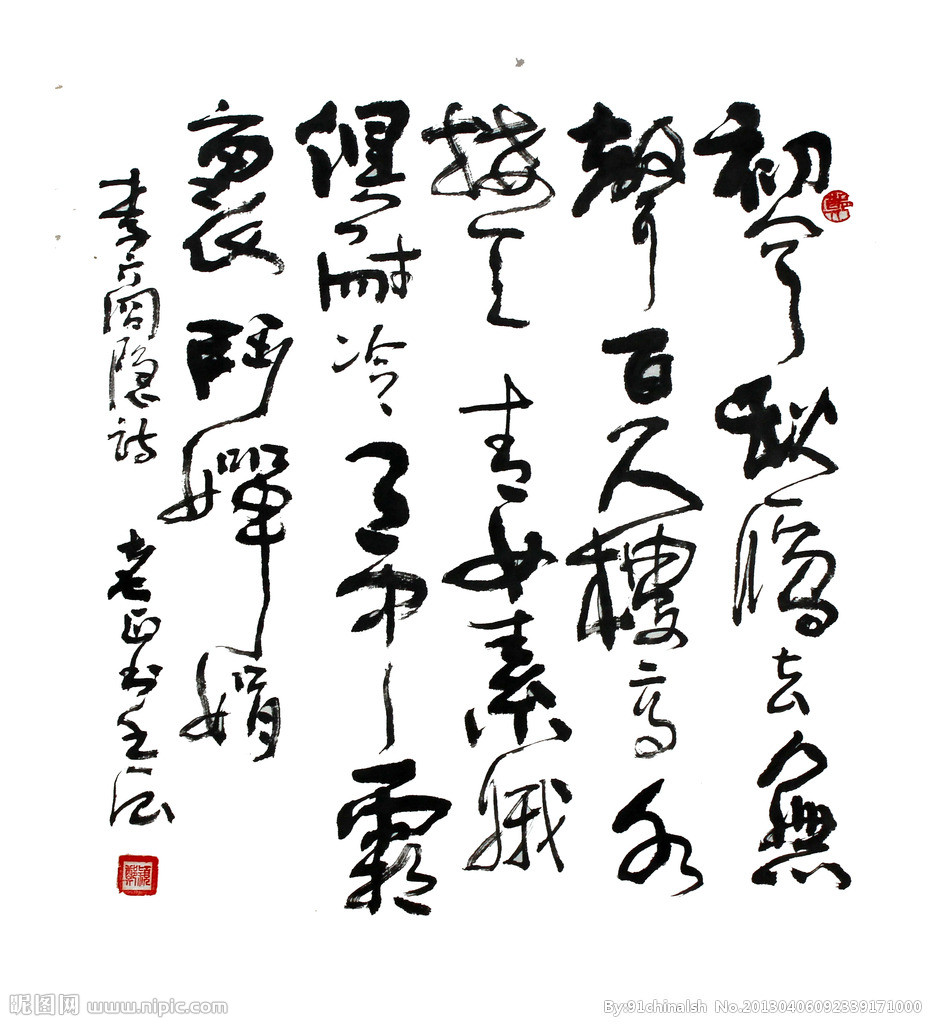 初秋鴻去無
聲百尺樓高水
接天青女素娥
俱耐冷月中霜
裏鬥嬋娟
李商隐诗 老正书
昵图网 www.nipic.com
By:91chinalsh No.20130406092339171000